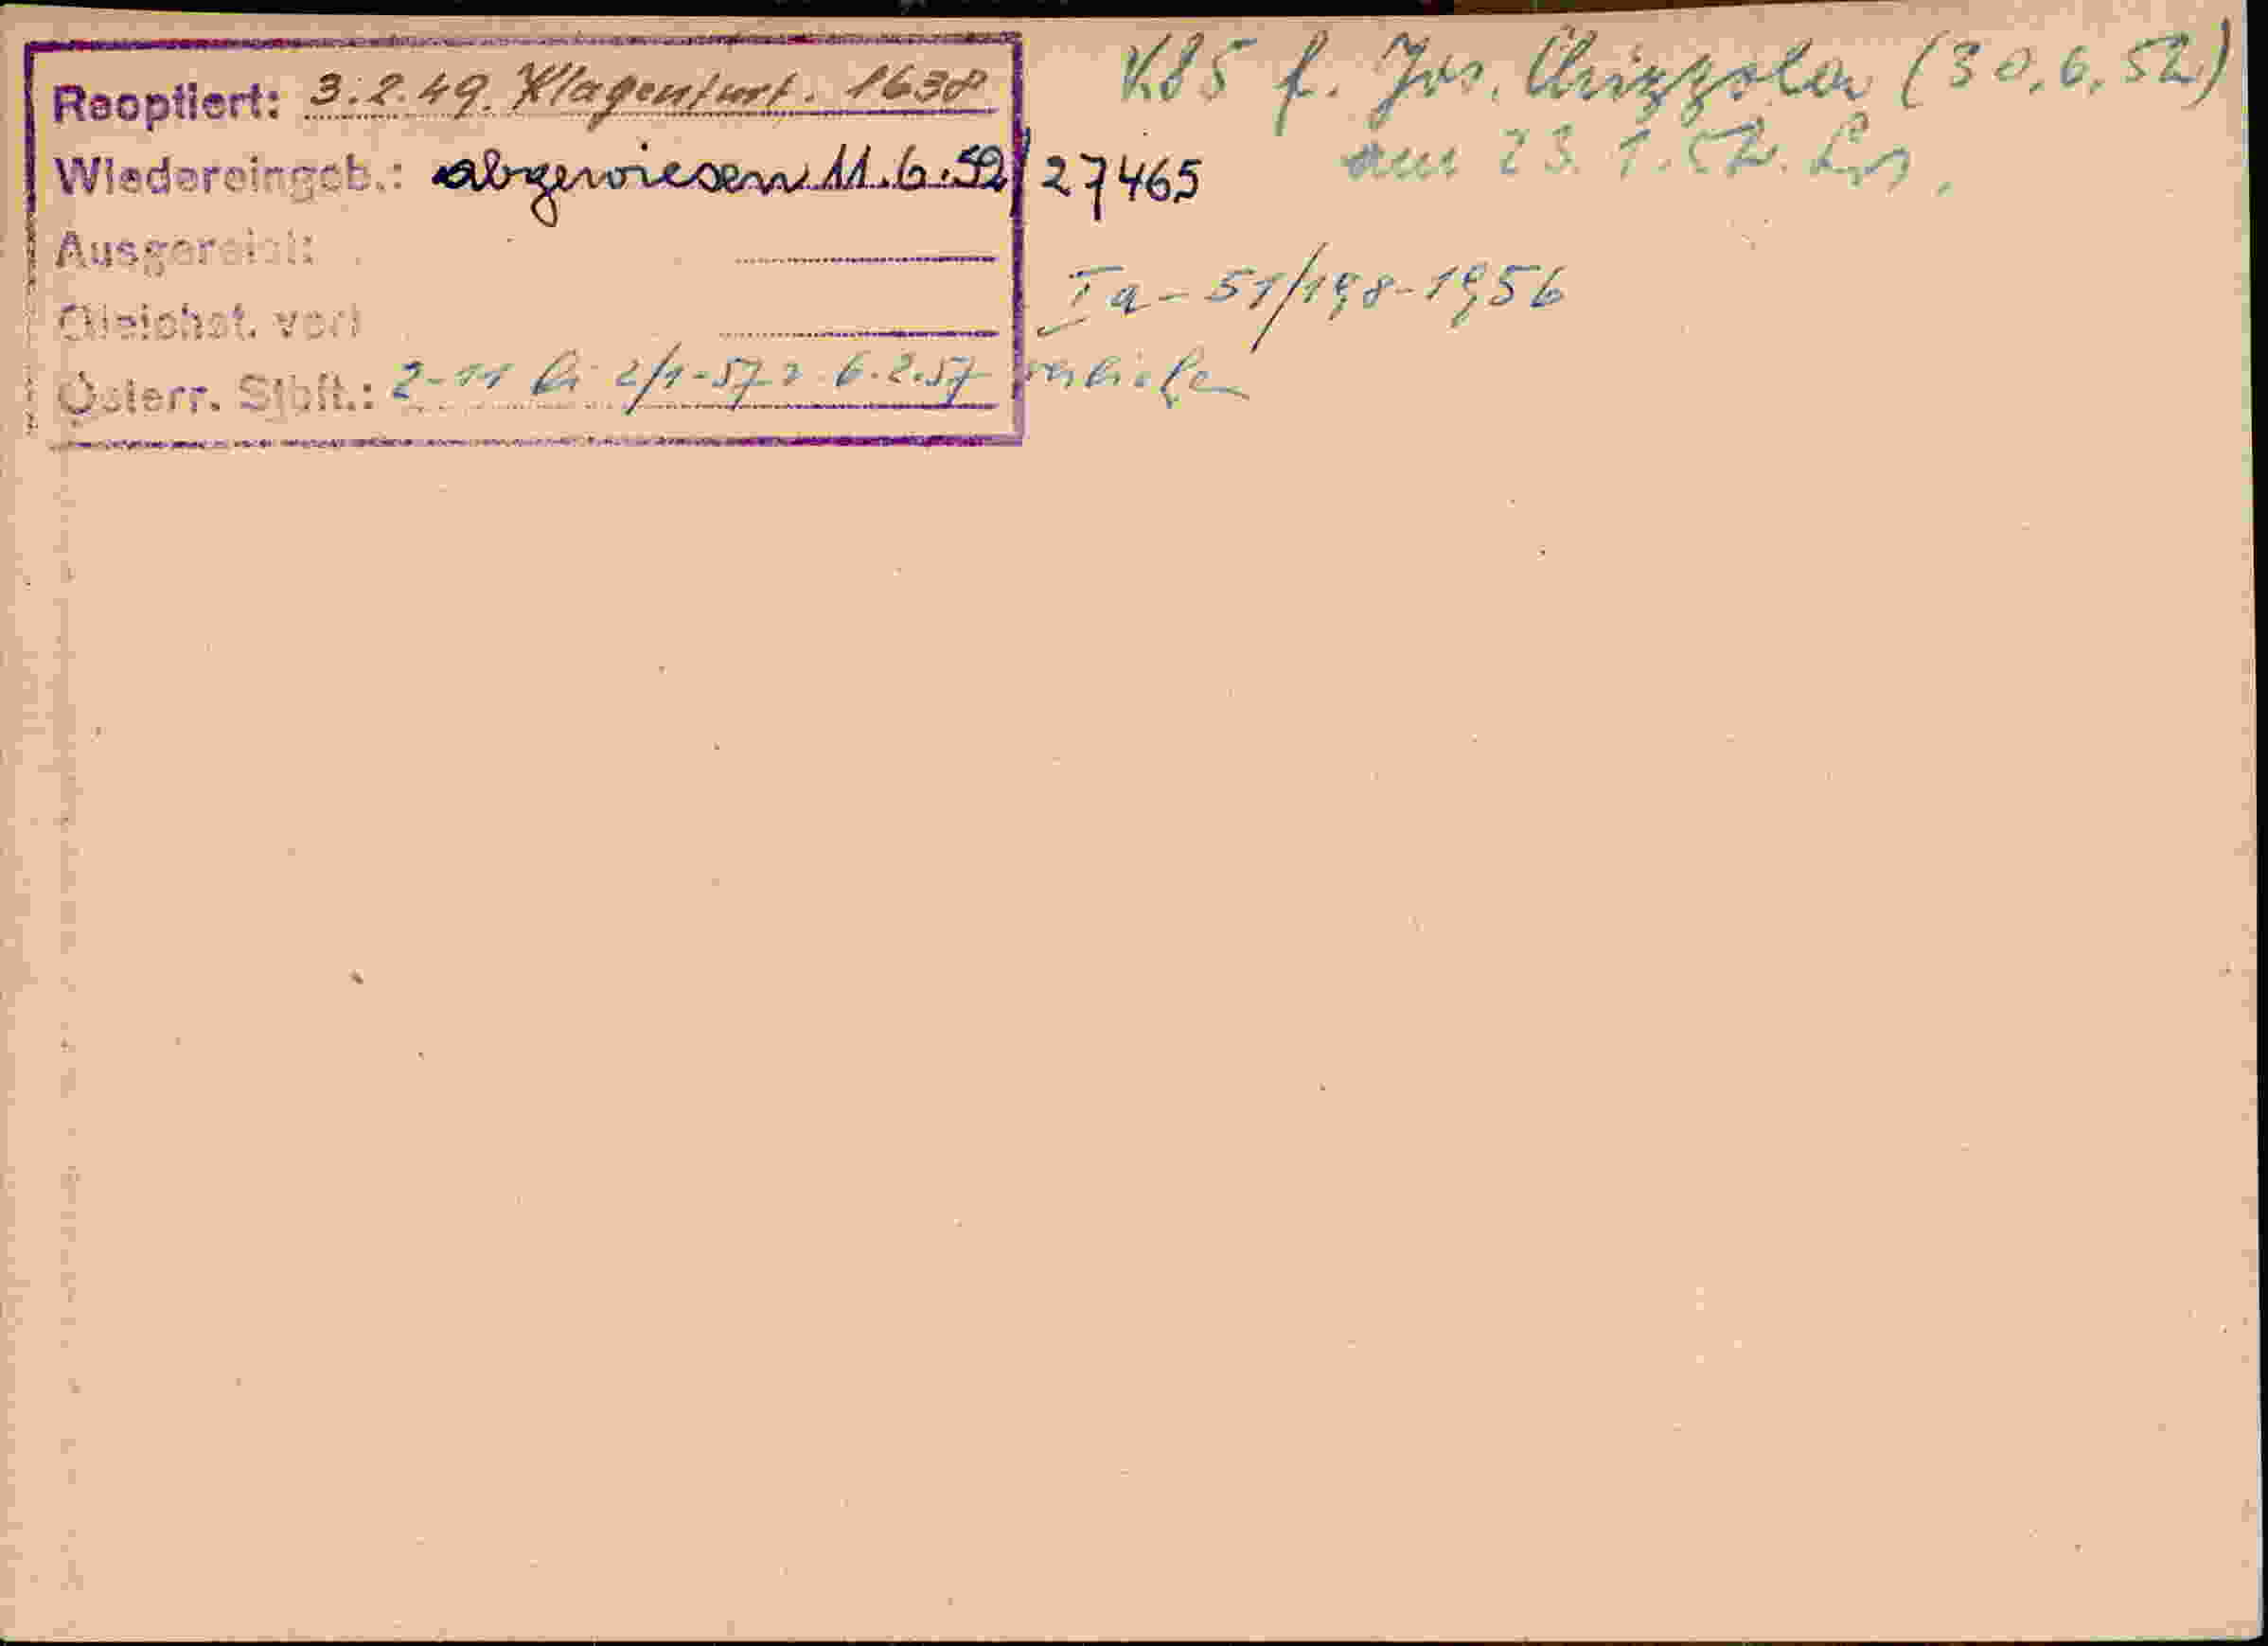 Reoptiert: 3.2.49. Klagenfurt. 1638
Wiedereingeb.: abgewiesen 11.6.52/27465
Ausgereist:
Gleichst. verl
Österr. Stbft.: 2-11 2/1-57 6.2.57 verliehen
K85 f. Jos. Chizzola (30.6.52)
am 23.1.52.
Ia-51/198-1956